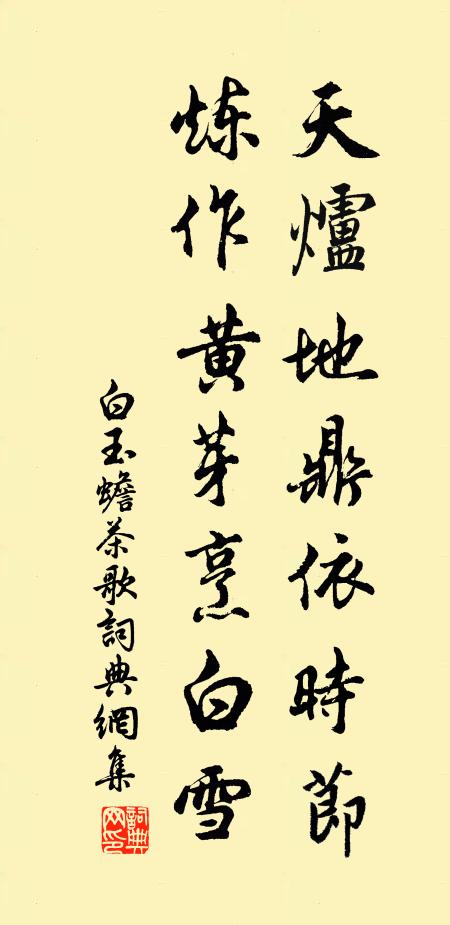 天爐地鼎依時節
炼作黄芽烹白雪
白玉蟾茶歌詞典網集
詞典网印